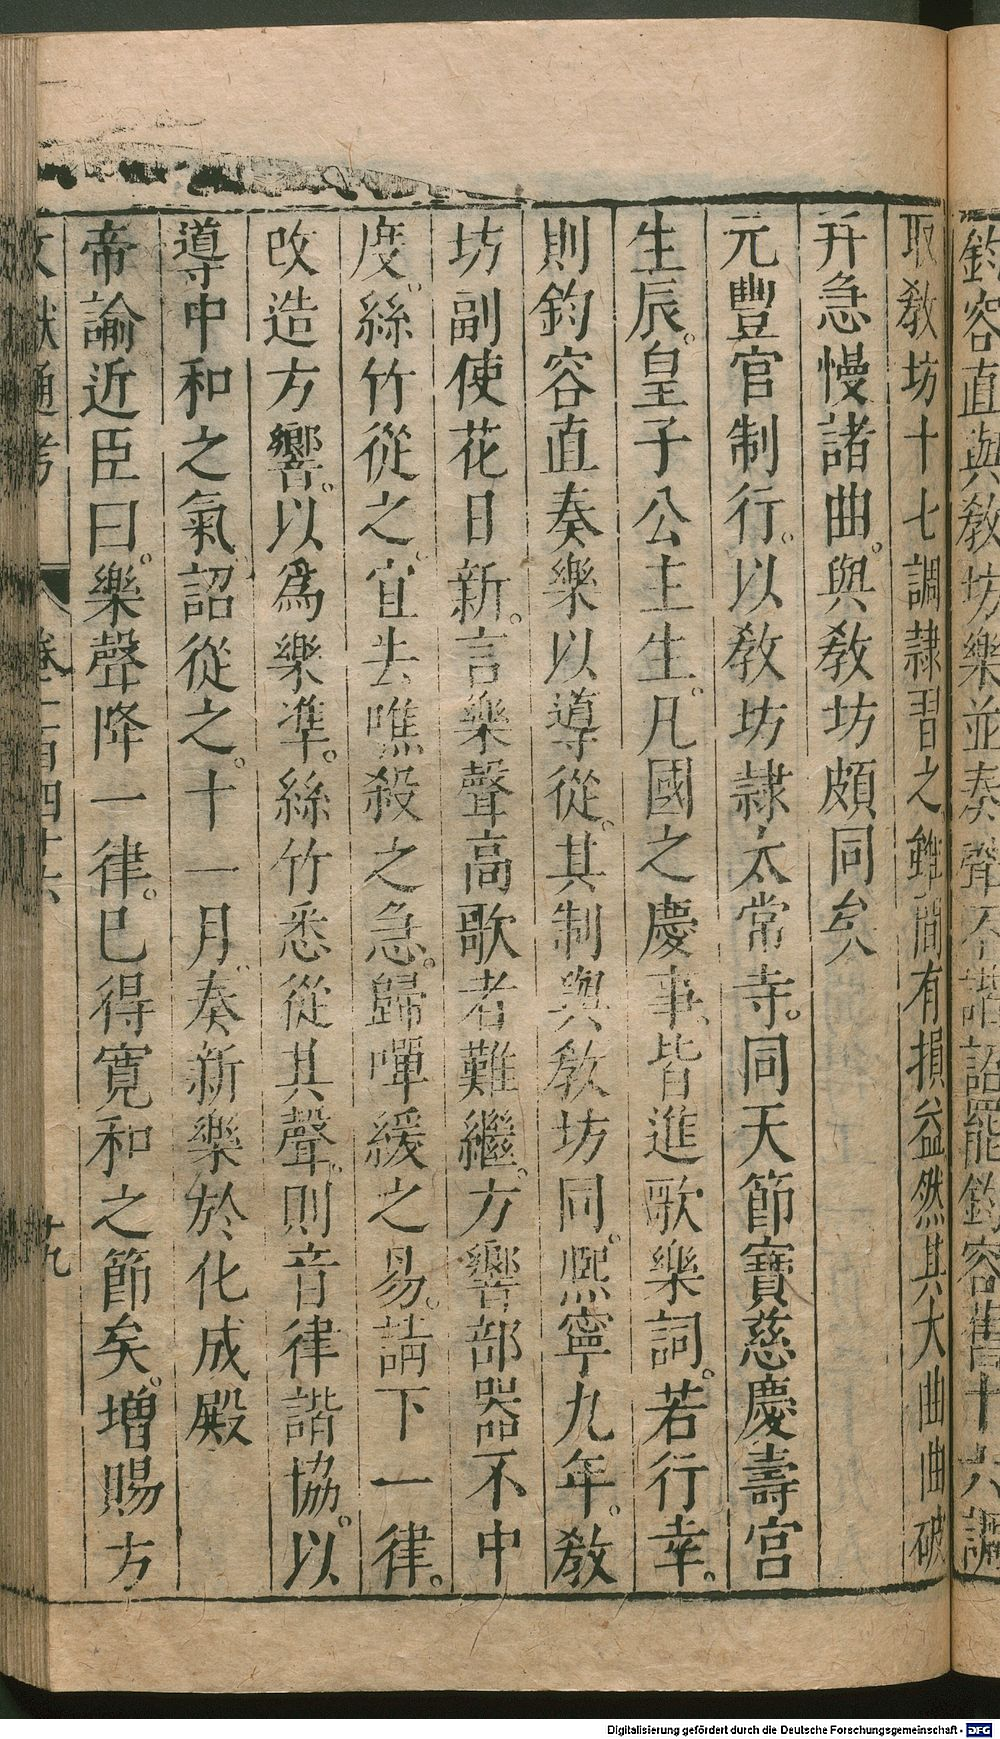 鈞容直與教坊樂並奏聲不諧詔罷鈞容舊十六調
取教坊十七調隷習之雖間有損益然其大曲曲破
幷急慢諸曲。與教坊頗同矣
元豐官制行。以教坊隷太常寺。同天節寶慈慶壽宮
生辰。皇子公主生。凡國之慶事、皆進歌樂詞。若行幸。
則鈞容直奏樂以導從。其制與教坊同。熈寧九年。教
坊副使花日新。言樂聲高歌者難繼。方響部器不中
度。絲竹從之。宜去噍殺之急。歸嘽緩之易。請下一律。
改造方響。以爲樂準。絲竹悉從其聲。則音律諧協。以
導中和之氣。詔從之。十一月。奏新樂於化成殿
帝諭近臣曰。樂聲降一律。已得寬和之節矣。增賜方
文獻通考 卷一百四十六 十九
Digitalisierung gefördert durch die Deutsche Forschungsgemeinschaft - DFG